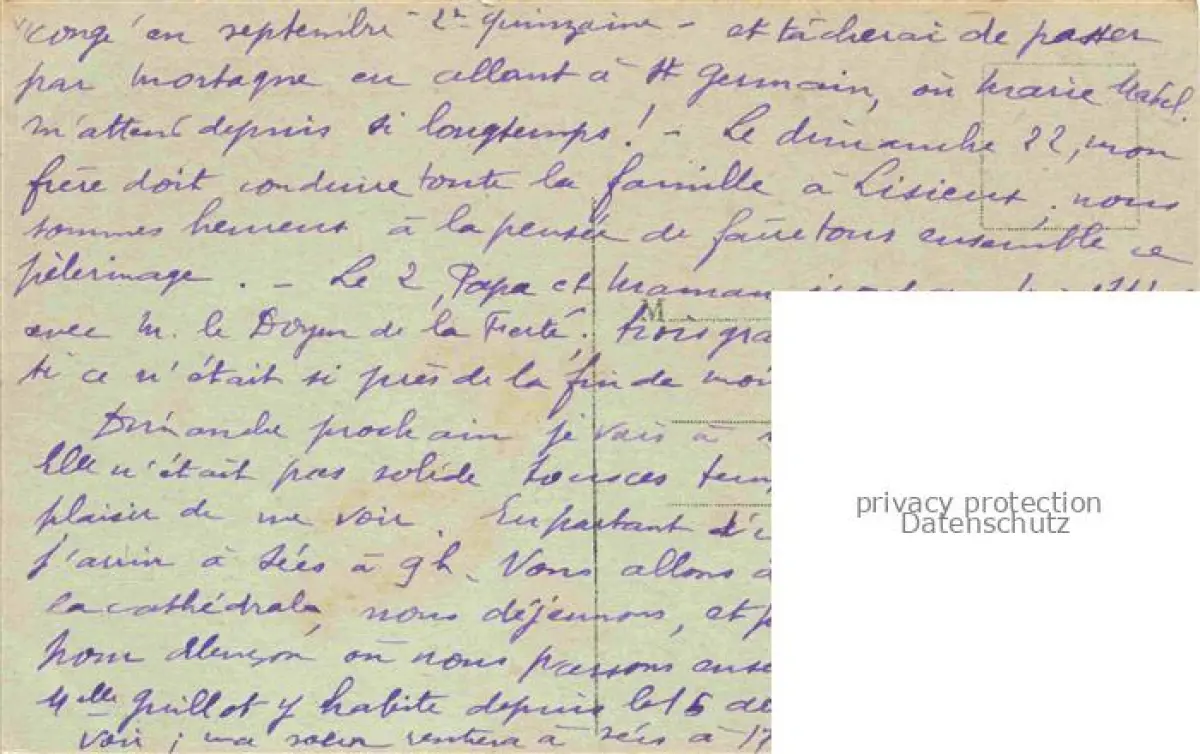 congé en septembre - 2e quinzaine - et tâcherai de passer
par Mortagne en allant à St Germain, où Marie
m'attend depuis si longtemps ! - Le dimanche 22, mon
frère doit conduire toute la famille à Lisieux, nous
sommes heureux à la pensée de faire tous ensemble ce
pèlerinage. - Le 2, Papa et Maman
M
avec M. le Doyen de la Ferté. trois
si ce n'était si près de la fin de
Dimanche prochain je vais à
Elle n'était pas solide tous ces
plaisir de me voir. En partant
privacy protection
Datenschutz
j'arrive à Sées à 9h. Nous allons à
la cathédrale, nous déjeunons, et
pour Alençon où nous passons
Melle Guillot y habite depuis le 15
voir ; ma soeur rentrera à Sées à 17